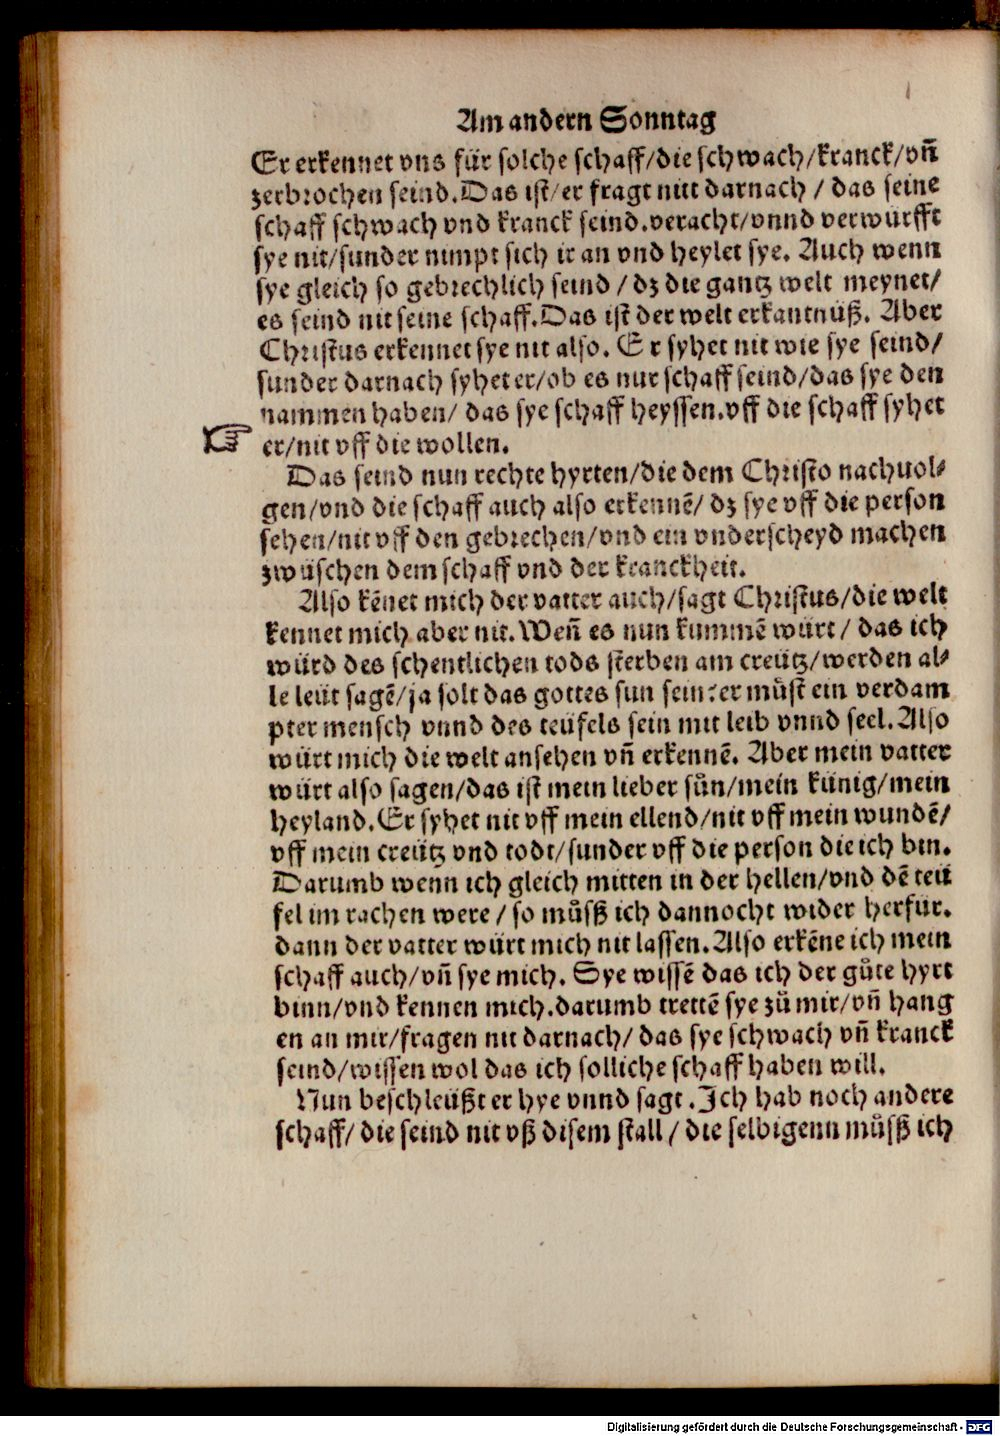 Am andern Sonntag
Er erkennet vns für solche schaff/die schwach/kranck/vñ
zerbrochen seind.Das ist/er fragt nitt darnach / das seine
schaff schwach vnd kranck seind.veracht/vnnd verwürfft
sye nit/sunder nimpt sich ir an vnd heylet sye. Auch wenn
sye gleich so gebrechlich seind / dz die gantz welt meynet/
es seind nit seine schaff.Das ist der welt erkantnüß. Aber
Christus erkennet sye nit also. Er syhet nit wie sye seind/
sunder darnach syhet er/ob es nur schaff seind/das sye den
nammen haben/ das sye schaff heyssen.vff die schaff syhet
☞ er/nit vff die wollen.
Das seind nun rechte hyrten/die dem Christo nachuol⸗
gen/vnd die schaff auch also erkennē/ dz sye vff die person
sehen/nit vff den gebrechen/vnd ein vnderscheyd machen
zwüschen dem schaff vnd der kranckheit.
Also kēnet mich der vatter auch/sagt Christus/die welt
kennet mich aber nit. Weñ es nun kummē würt / das ich
würd des schentlichen tods sterben am creütz/werden al⸗
le leüt sagē/ja solt das gottes sun sein:er müst ein verdam
pter mensch vnnd des teüfels sein mit leib vnnd seel. Also
würt mich die welt ansehen vñ erkennē. Aber mein vatter
würt also sagen/das ist mein lieber sůn/mein künig/mein
heyland.Er syhet nit vff mein ellend/nit vff mein wundē/
vff mein creütz vnd todt/sunder vff die person die ich bin.
Darumb wenn ich gleich mitten in der hellen/vnd dē teü
fel im rachen were / so můß ich dannocht wider herfür.
dann der vatter würt mich nit lassen. Also erkēne ich mein
schaff auch/vñ sye mich. Sye wissē das ich der gůte hyrt
binn/vnd kennen mich.darumb trettē sye zů mir/vñ hang
en an mir/fragen nit darnach/ das sye schwach vñ kranck
seind/wissen wol das ich solliche schaff haben will.
Nun beschleüßt er hye vnnd sagt .Ich hab noch andere
schaff/ die seind nit vß disem stall / die selbigenn můß ich
Digitalisierung gefördert durch die Deutsche Forschungsgemeinschaft - DFG